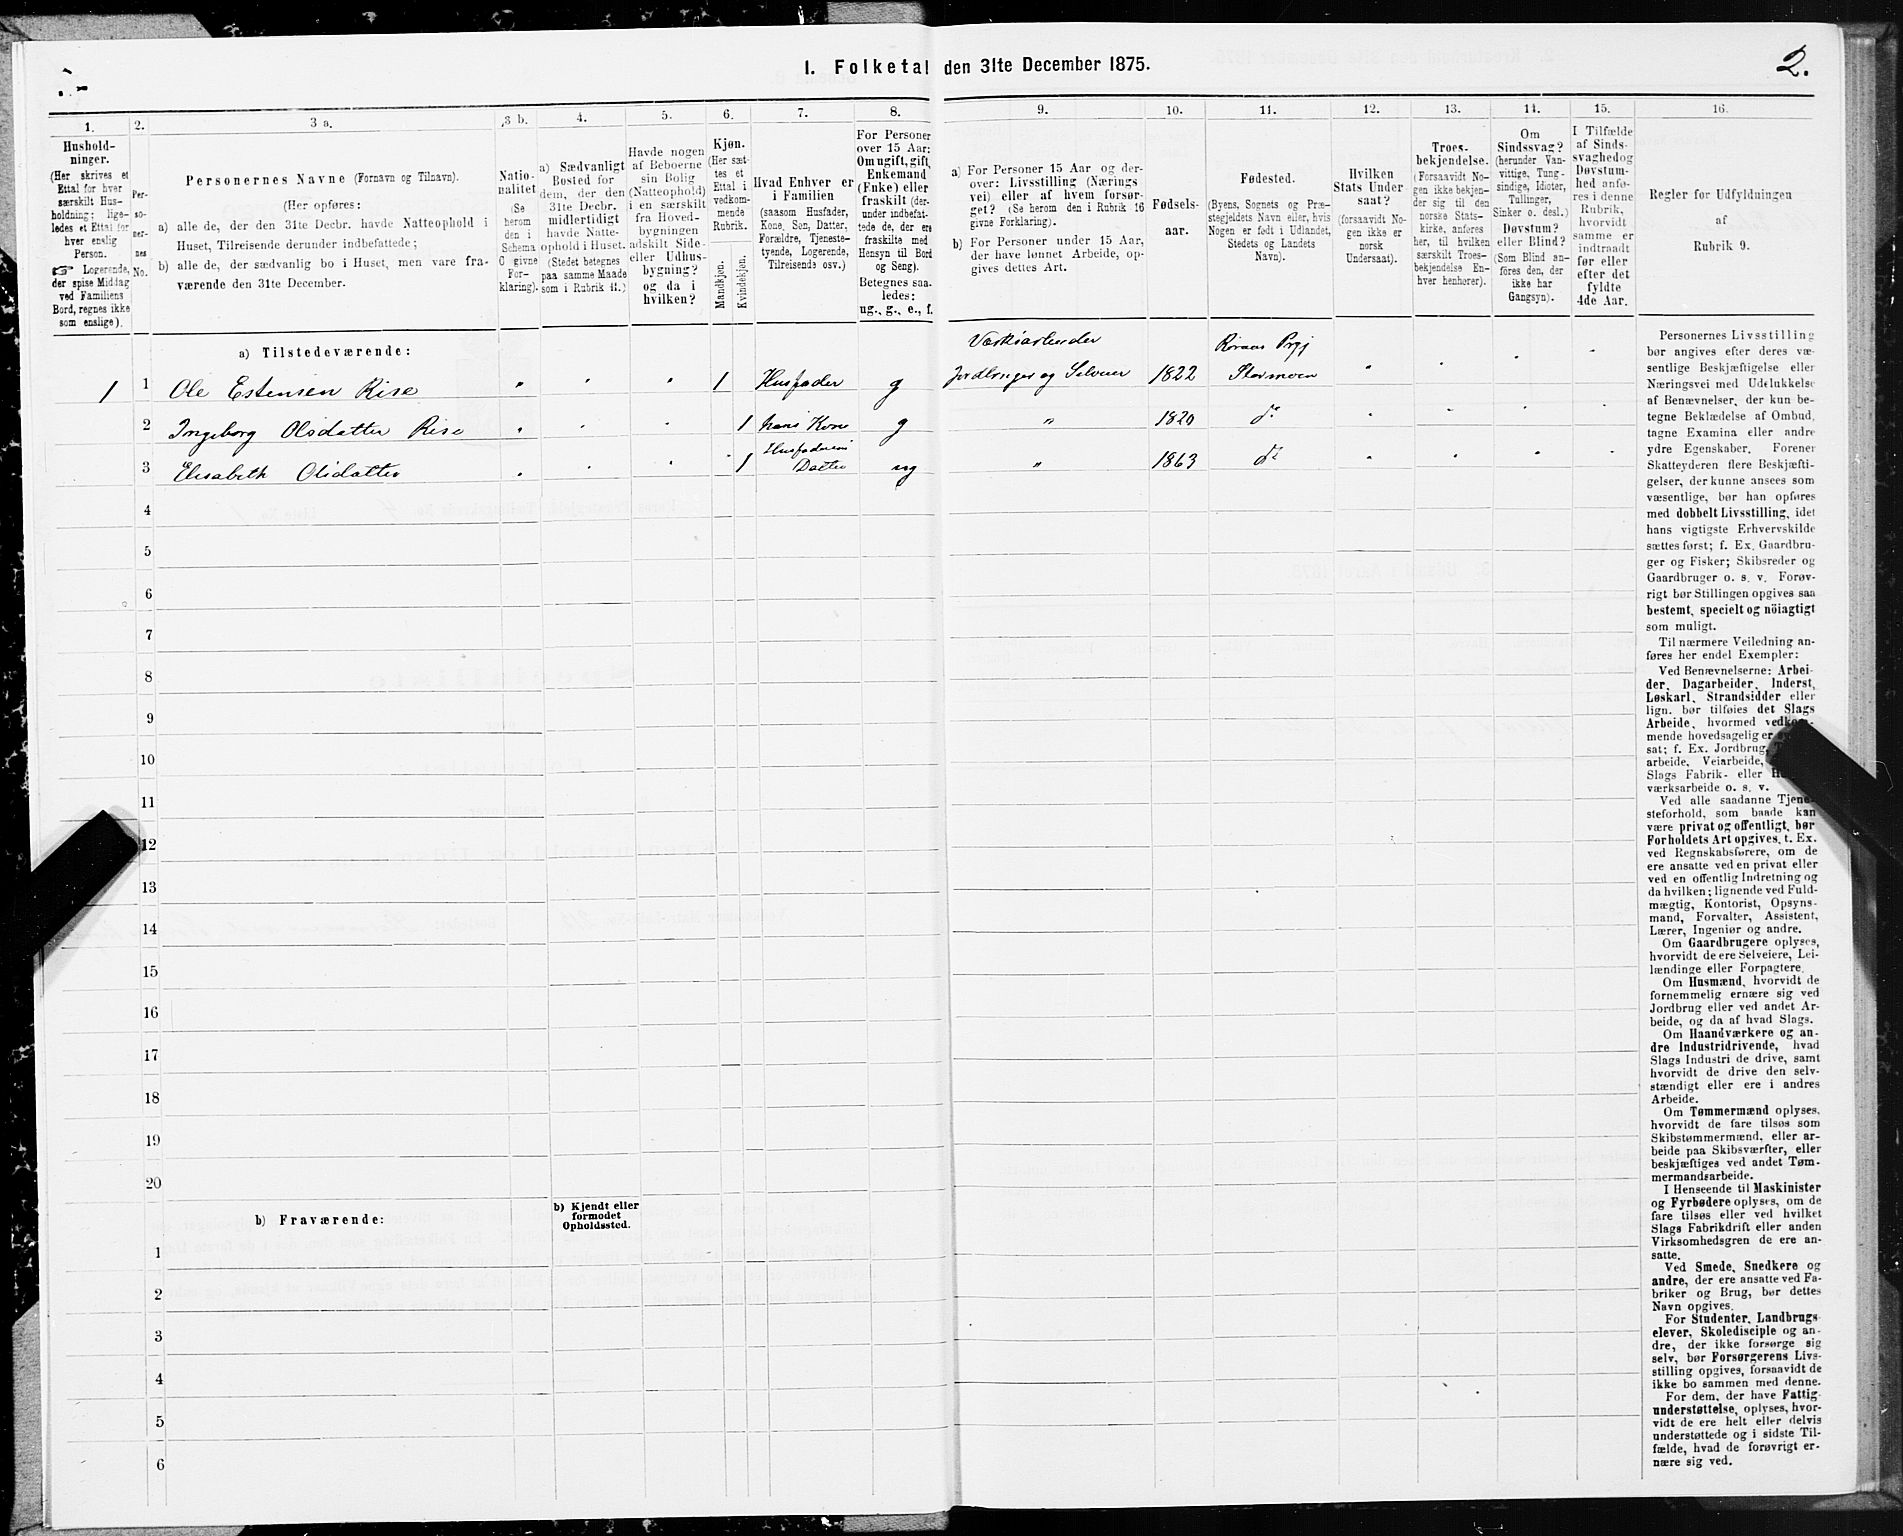 I. Folketal den 31te December 1875.
2.
1. 2. 3 a. 3 b. 4. 5. 6. 7. 8. 9. 10. 11. 12. 13. 14. 15. 16.
Hushold-
ninger.
(Her skrives et
Ettal for hver
særskilt Hus-
holdning; lige-
ledes et Ettal for
hver enslig
Person.
☞ Logerende,
der spise Middag
ved Familiens
Bord, regnes ikke
som enslige).
Per-
so-
ner-
nes
No.
Personernes Navne (Fornavn og Tilnavn).
(Her opføres:
a) alle de, der den 31te Decbr. havde Natteophold i
Huset, Tilreisende derunder indbefattede;
b) alle de, der sædvanlig bo i Huset, men vare fra-
værende den 31te December.
Natio-
nalitet
(Se
herom
den i
Schema
C givne
For-
klaring).
a) Sædvanligt
Bosted for
dem, der den
31te Decbr.
midlertidigt
havde Natte-
ophold i Huset.
(Stedet betegnes
paa samme Maade
som i Rubrik 11.)
Havde nogen
af Beboerne
sin Bolig
(Natteophold)
i en særskilt
fra Hoved-
bygningen
adskilt Side-
eller Udhus-
bygning?
og da i
hvilken?
Kjøn.
(Her sæt-
tes et
Ettal i
vedkom-
mende
Rubrik.
Mandkjøn.
Kvindekjøn.
Hvad Enhver er
i Familien
(saasom Husfader,
Kone, Søn, Datter,
Forældre, Tjeneste-
tyende, Logerende,
Tilreisende osv.)
For Personer
over 15 Aar:
Om ugift, gift,
Enkemand
(Enke) eller
fraskilt (der-
under indbefat-
tede de, der ere
fraskilte med
Hensyn til Bord
og Seng).
Betegnes saa-
ledes:
ug., g., e., f.
a) For Personer 15 Aar og der-
over: Livsstilling (Nærings
vei) eller af hvem forsør-
get? (Se herom den i Rubrik 16
givne Forklaring).
b) For Personer under 15 Aar,
der have lønnet Arbeide, op-
gives dettes Art.
Fødsels-
aar.
Fødested.
(Byens, Sognets og Præ-
stegjeldets Navn eller, hvis
Nogen er født i Udlandet,
Stedets og Landets
Navn).
Hvilken
Stats Under
saat?
(forsaavidt No-
gen ikke er
norsk
Undersaat).
Troes-
bekjendelse.
(Forsaavidt No-
gen ikke bekjen-
der sig til den
norske Stats-
kirke, anføres
her, til hvilken
særskilt Troes-
bekjendelse En-
hver henhører).
Om
Sindssvag?
(herunder Van-
vittige, Tung-
sindige, Idioter,
Tullinger,
Sinker o. desl.)
Døvstum?
eller Blind?
(Som Blind an-
føres den, der
ikke har
Gangsyn).
I Tilfælde
af Sinds-
svaghed og
Døvstum-
hed anfø-
res i denne
Rubrik,
hvorvidt
samme er
indtraadt
før eller
efter det
fyldte
4de Aar.
Regler for Udfyldningen
af
Rubrik 9.
a) Tilstedeværende:
Røraas Prgj
1 1 Ole Estensen Rise " " " 1 Husfader g Jordbruger og Selveier 1822 Stormoen " " " "
2 Ingeborg Olsdatter Rise " " " 1 hans Kone g " 1820 do " " " "
3 Elisabeth Olsdatter " " " 1 Husfaderens Datter ug " 1863 do " " " "
4
5
6
7
8
9
10
11
12
13
14
15
16
17
18
19
20
b) Fraværende:
b) Kjendt eller
formodet
Opholdssted.
1
2
3
4
5
6
Personernes Livsstilling
bør angives efter deres væ-
sentlige Beskjæftigelse eller
Næringsvei med Udelukkelse
af Benævnelser, der kun be-
tegne Beklædelse af Ombud,
tagne Examina eller andre
ydre Egenskaber. Forener
Skatteyderen flere Beskjæfti-
gelser, der kunne ansees som
væsentlige, bør han opføres
med dobbelt Livsstilling, idet
hans vigtigste Erhvervskilde
sættes først; f. Ex. Gaardbru-
ger og Fisker; Skibsreder og
Gaardbruger o. s. v. Forøv-
rigt bør Stillingen opgives saa
bestemt, specielt og nöiagtigt
som muligt.
Til nærmere Veiledning an-
føres her endel Exempler:
Ved Benævnelserne: Arbei-
der, Dagarbeider, Inderst,
Løskarl, Strandsidder eller
lign. bør tilføies det Slags
Arbeide, hvormed
mende hovedsagelig er
sat; f. Ex. Jordbrug,
arbeide, Veiarbeide,
Slags Fabrik- eller
værksarbeide o. s. v.
Ved alle saadanne Tjene-
steforhold, som baade kan
være privat og offentligt, bør
Forholdets Art opgives, t. Ex.
ved Regnskabsførere, om de
ere ansatte ved en privat eller
ved en offentlig Indretning og
da hvilken; lignende ved Fuld-
mægtig, Kontorist, Opsyns-
mand, Forvalter, Assistent,
Lærer, Ingeniør og andre.
Om Gaardbrugere oplyses,
hvorvidt de ere Selveiere, Lei-
lændinge eller Forpagtere.
Om Husmænd, hvorvidt de
fornemmelig ernære sig ved
Jordbrug eller ved andet Ar-
beide, og da af hvad Slags.
Om Haandværkere og an-
dre Industridrivende, hvad
Slags Industri de drive, samt
hvorvidt de drive den selv-
stændigt eller ere i andres
Arbeide.
Om Tømmermænd oplyses,
hvorvidt de fare tilsøs som
Skibstømmermænd, eller ar-
beide paa Skibsværfter, eller
beskjæftiges ved andet Tøm-
mermandsarbeide.
I Henseende til Maskinister
og Fyrbødere oplyses, om de
fare tilsøs eller ved hvilket
Slags Fabrikdrift eller anden
Virksomhedsgren de ere an-
satte.
Ved Smede, Snedkere og
andre, der ere ansatte ved Fa-
briker og Brug, bør dettes
Navn opgives.
For Studenter, Landbrugs-
elever, Skoledisciple og an-
dre, der ikke forsørge sig
selv, bør Forsørgerens Livs-
stilling opgives, forsaavidt de
ikke bo sammen med denne.
For dem, der have Fattig-
understøttelse, oplyses, hvor-
vidt de ere helt eller delvis
understøttede og i sidste Til-
fælde, hvad de forøvrigt er-
nære sig ved.